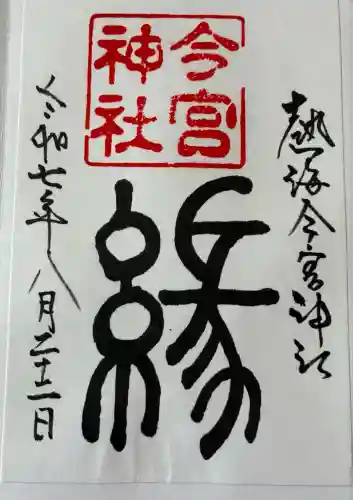 熱海今宮神社
今宮
神社
縁
令和七年八月二十二日